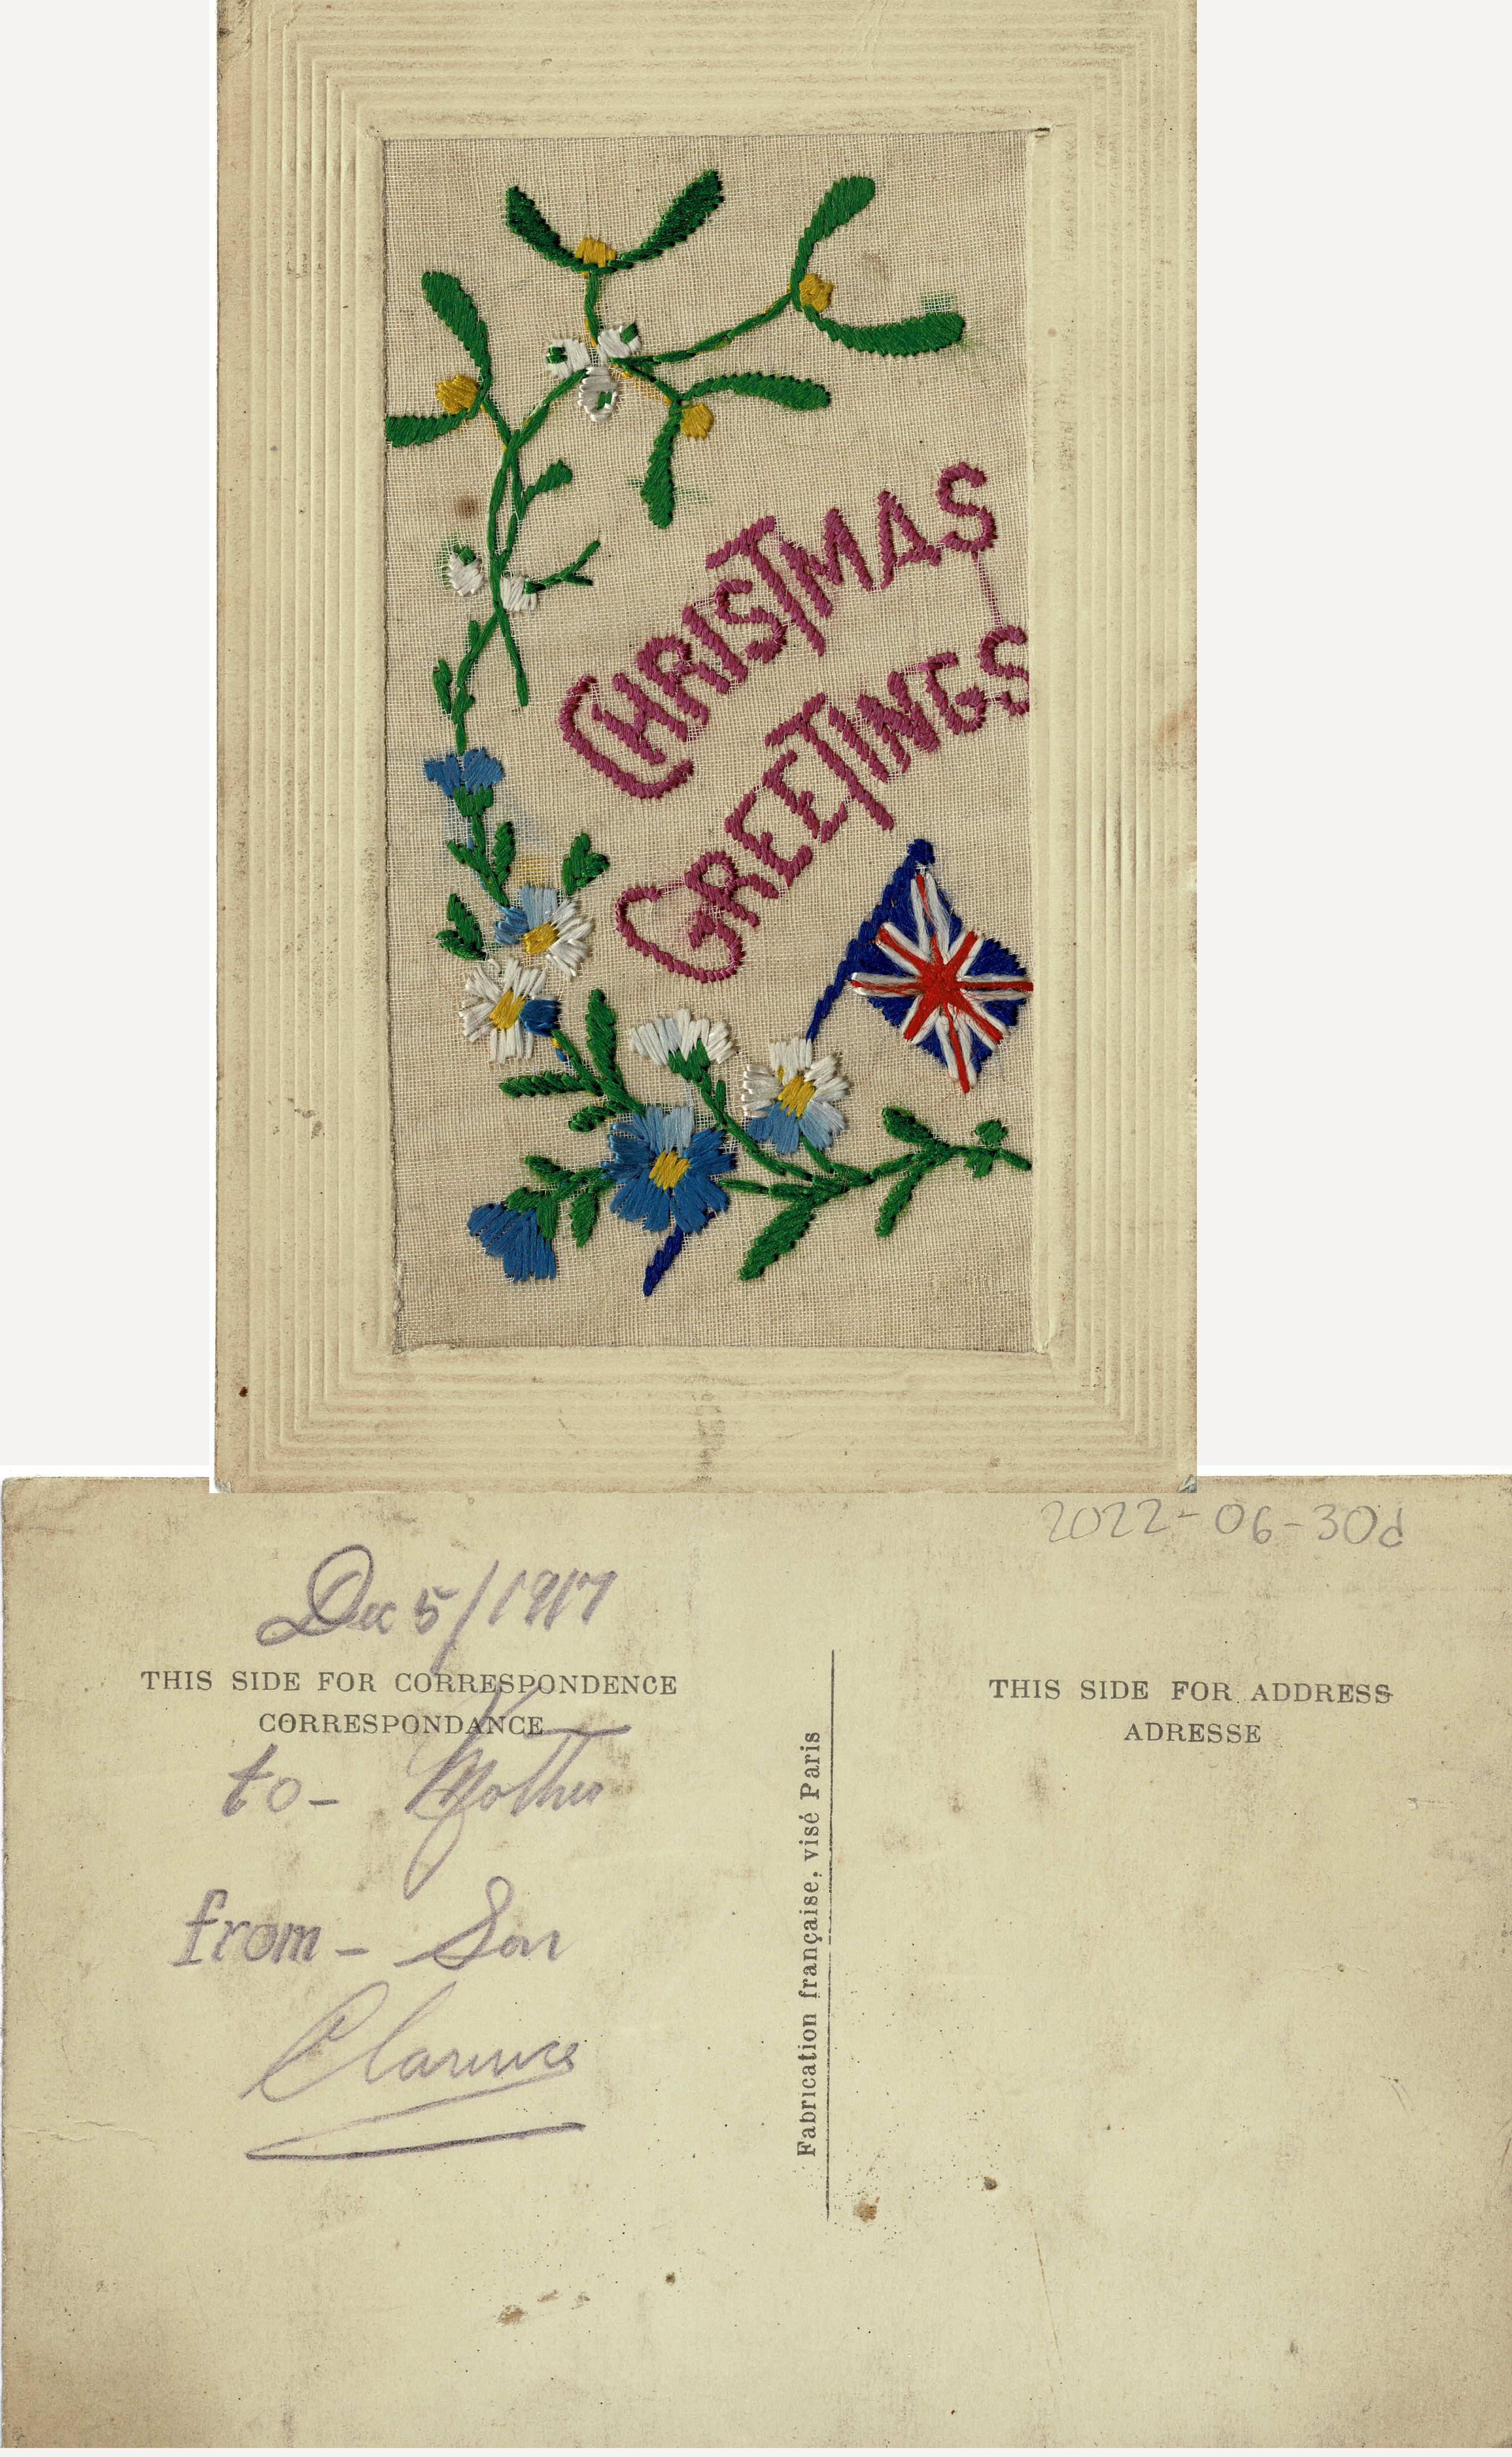 CHRISTMAS
GREETINGS
2022-06-30d
Dec 5/1917
THIS SIDE FOR CORRESPONDENCE
CORRESPONDANCE
to- Mother
from- Son
Clarence
Fabrication française, visé Paris
THIS SIDE FOR ADDRESS
ADRESSE